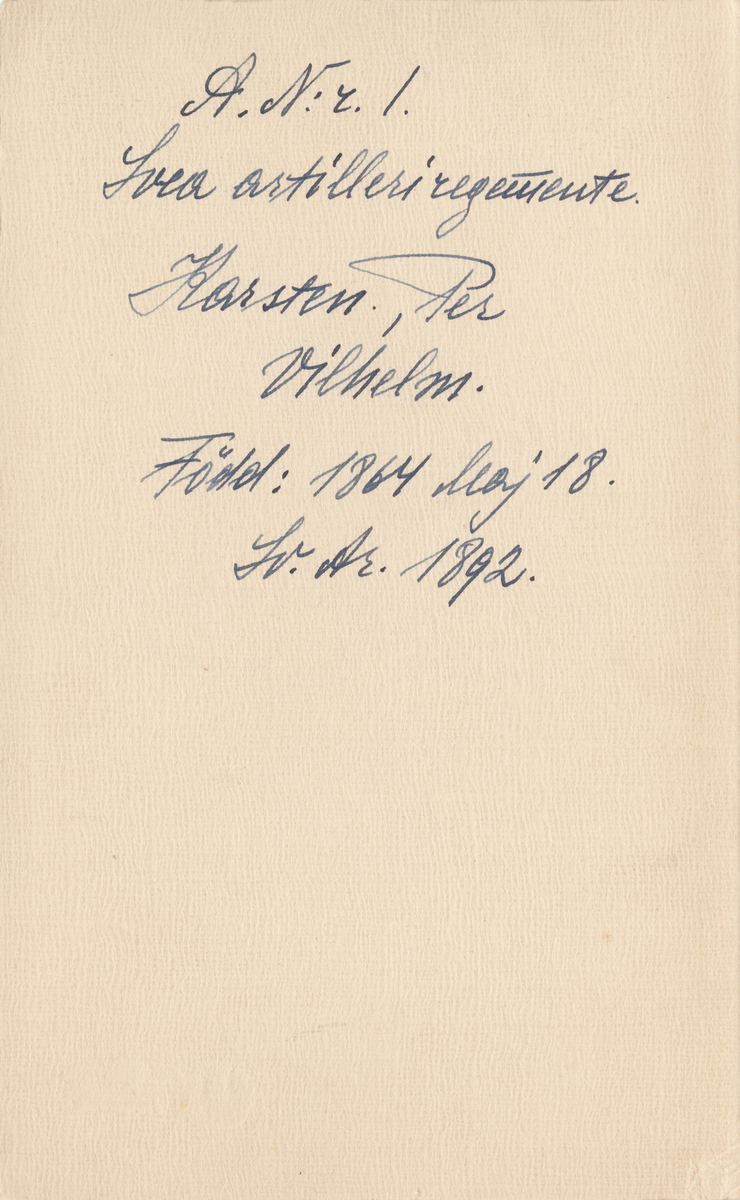 A. N:r. 1.
Svea artilleriregemente.
Karsten., Per
Vilhelm.
Född: 1864 Maj 18.
Sv. Ar. 1892.